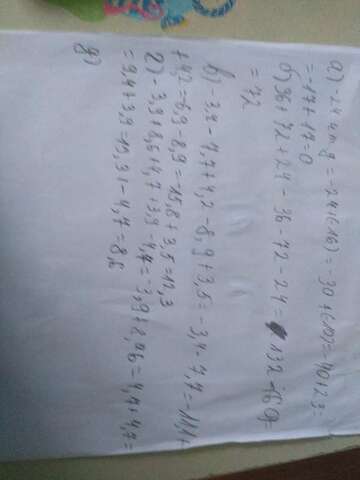 а) -24 = -24+(-16)=-30+(-10)=40+23=
=-17+17=0
б) 36+72+24-36-72-24= 132-60
=72
в) -3,4-7,7+4,2-8,9+3,5=-3,4-7,7=-11,1+
+4,2=-6,9-8,9=-15,8+3,5=12,3
г) -3,9+8,6+4,7+3,9-4,7=-3,9+8,6=4,7+4,7=
=9,4+3,9=13,3-4,7=8,6
д)